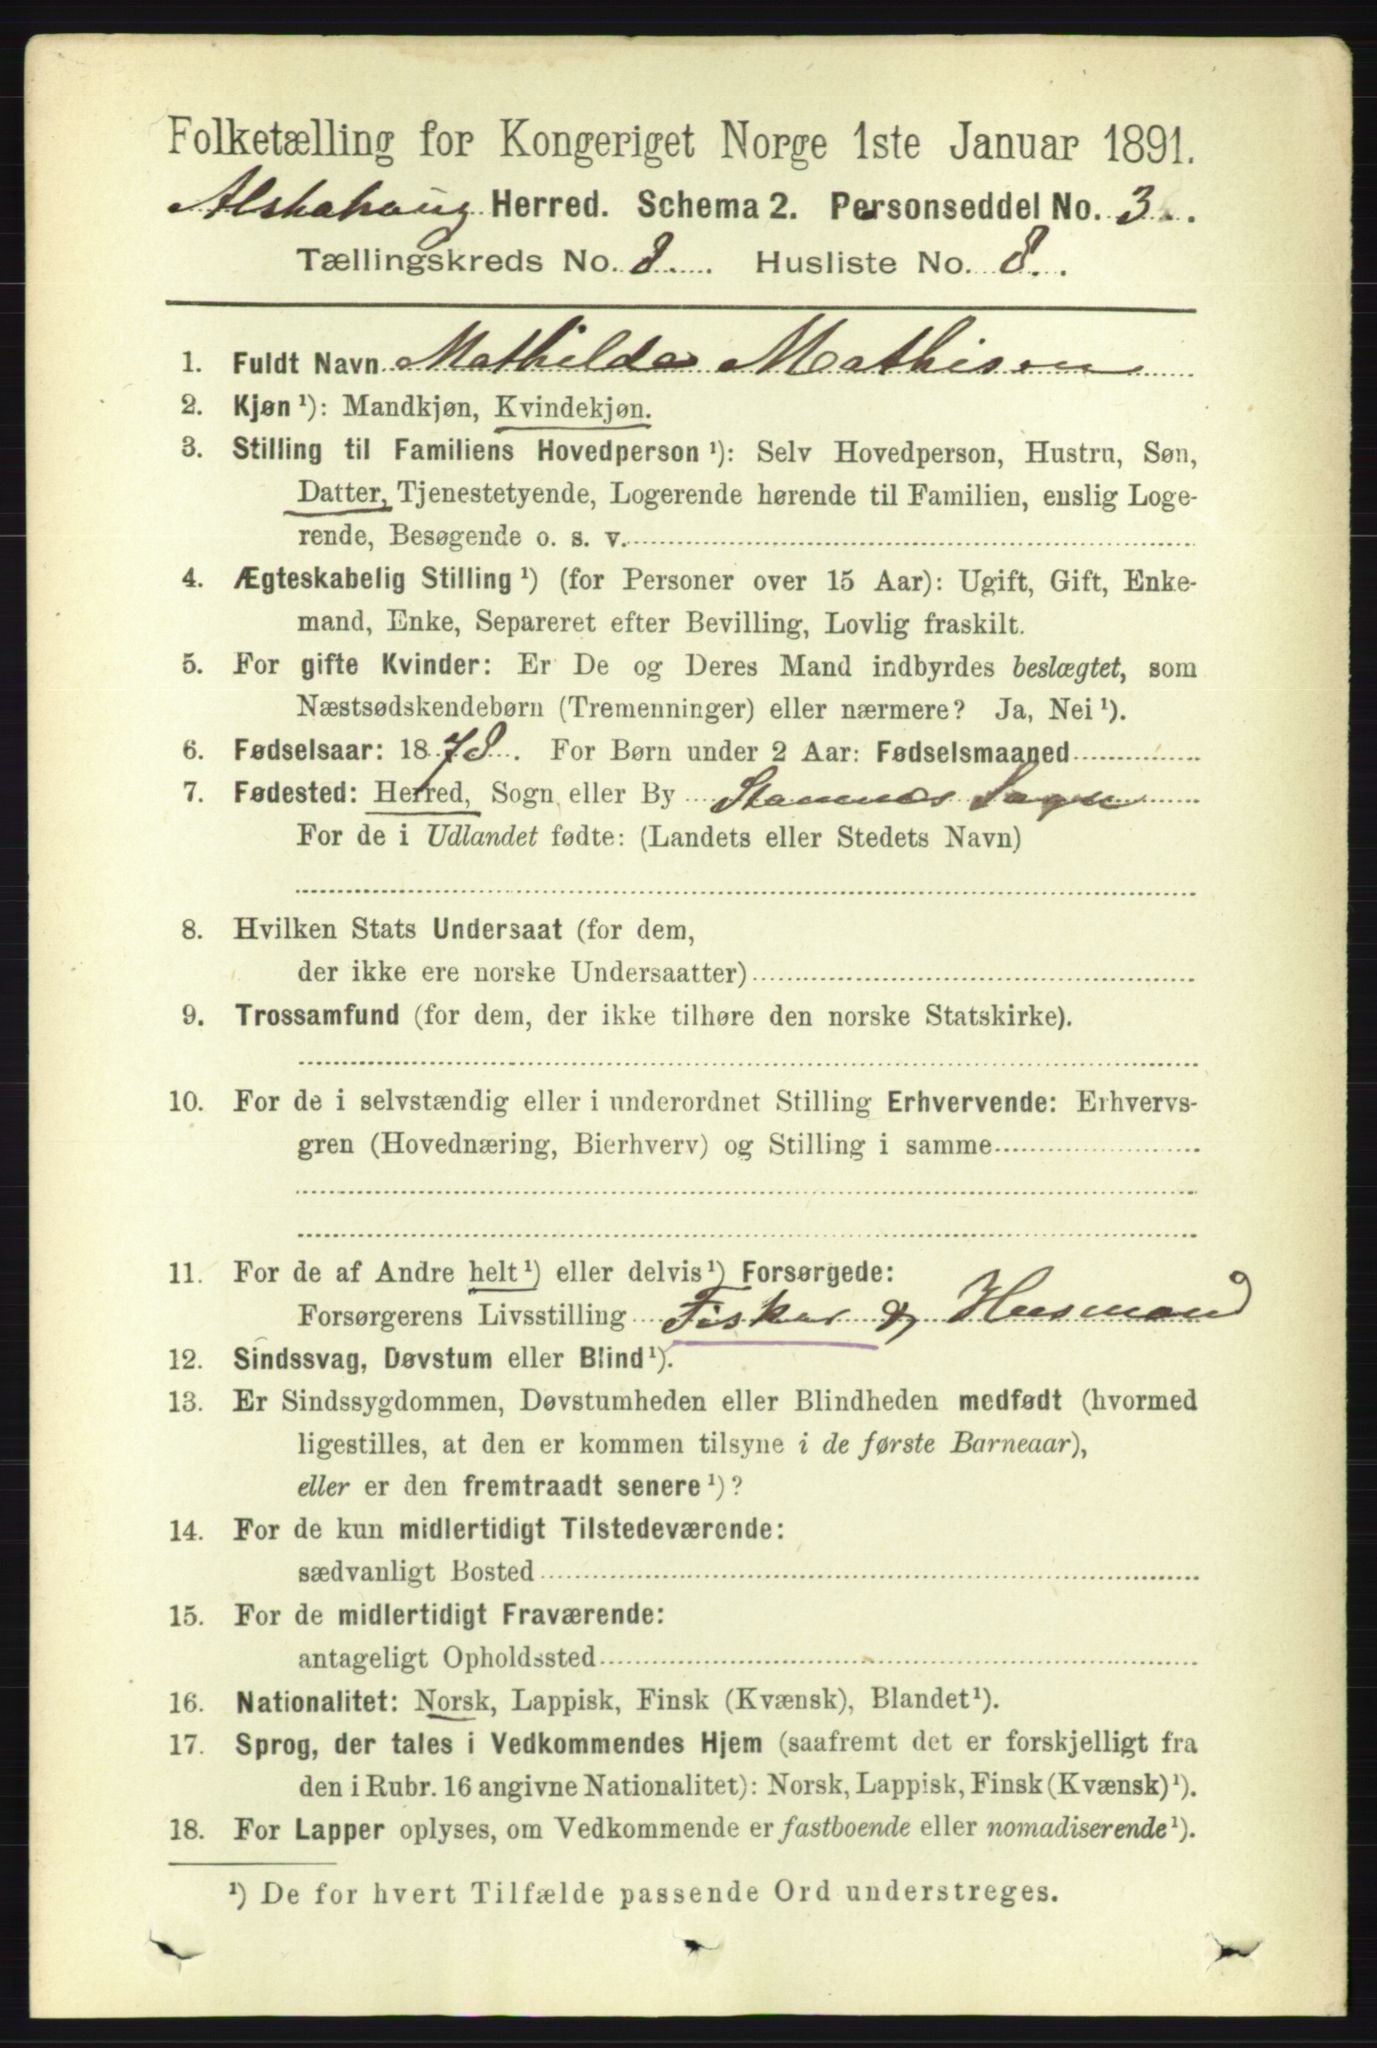 Folketælling for Kongeriget Norge 1ste Januar 1891.
Alstahaug Herred. Schema 2. Personseddel No. 3.
Tællingskreds No. 8. Husliste No. 8.
1. Fuldt Navn Mathilda Mathisen
2. Kjøn ¹): Mandkjøn, Kvindekjøn.
3. Stilling til Familiens Hovedperson ¹): Selv Hovedperson, Hustru, Søn,
Datter, Tjenestetyende, Logerende hørende til Familien, enslig Loge-
rende, Besøgende o. s. v.
4. Ægteskabelig Stilling ¹) (for Personer over 15 Aar): Ugift, Gift, Enke-
mand, Enke, Separeret efter Bevilling, Lovlig fraskilt.
5. For gifte Kvinder: Er De og Deres Mand indbyrdes beslægtet, som
Næstsødskendebørn (Tremenninger) eller nærmere? Ja, Nei ¹).
6. Fødselsaar: 1878. For Børn under 2 Aar: Fødselsmaaned
7. Fødested: Herred, Sogn eller By Stamnes Sogn
For de i Udlandet fødte: (Landets eller Stedets Navn)
8. Hvilken Stats Undersaat (for dem,
der ikke ere norske Undersaatter)
9. Trossamfund (for dem, der ikke tilhøre den norske Statskirke).
10. For de i selvstændig eller i underordnet Stilling Erhvervende: Erhvervs-
gren (Hovednæring, Bierhverv) og Stilling i samme
11. For de af Andre helt ¹) eller delvis ¹) Forsørgede:
Forsørgerens Livsstilling Fisker & Husmand
12. Sindssvag, Døvstum eller Blind ¹).
13. Er Sindssygdommen, Døvstumheden eller Blindheden medfødt (hvormed
ligestilles, at den er kommen tilsyne i de første Barneaar),
eller er den fremtraadt senere ¹)?
14. For de kun midlertidigt Tilstedeværende:
sædvanligt Bosted
15. For de midlertidigt Fraværende:
antageligt Opholdssted
16. Nationalitet: Norsk, Lappisk, Finsk (Kvænsk), Blandet ¹).
17. Sprog, der tales i Vedkommendes Hjem (saafremt det er forskjelligt fra
den i Rubr. 16 angivne Nationalitet): Norsk, Lappisk, Finsk (Kvænsk) ¹).
18. For Lapper oplyses, om Vedkommende er fastboende eller nomadiserende ¹).
¹) De for hvert Tilfælde passende Ord understreges.